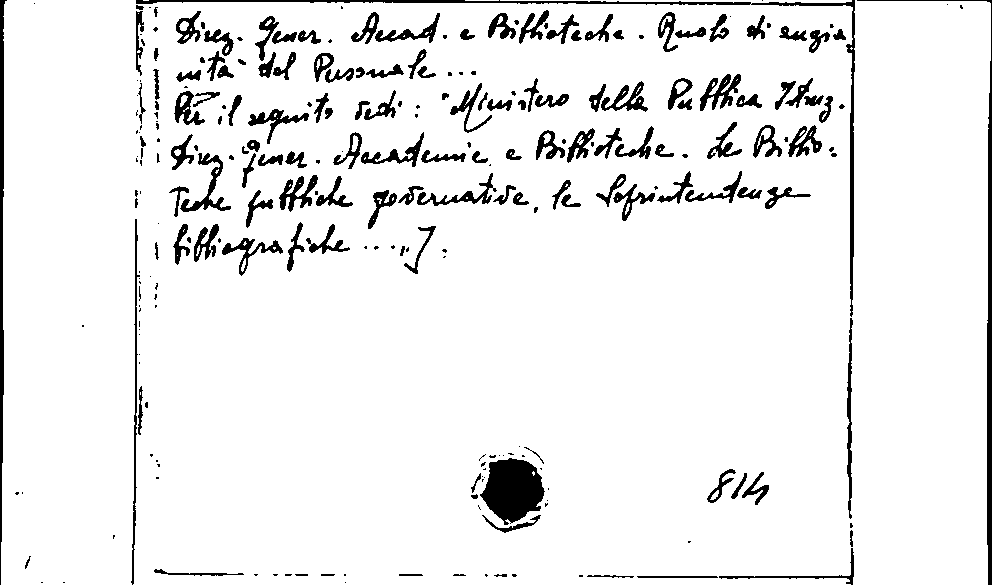 Direz. Gener. Accad. e Biblioteche. Ruolo di anzia-
nità del Personale ...
Per il seguito vedi: "Ministero della Pubblica Istruz.
Direz. Gener. Accademie e Biblioteche. Le Biblio-
teche pubbliche governative, le Soprintendenze
bibliografiche ..."].
814